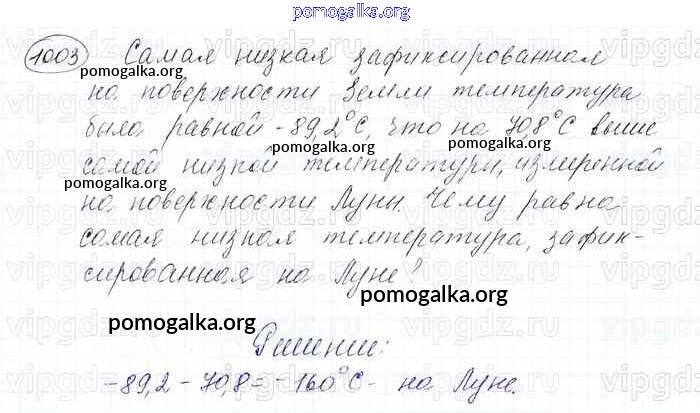 pomogalka.org
1003 Самая низкая зафиксированная
на поверхности Земли температура
была равной -89,2°С, что на 70,8°С выше
самой низкой температуры, измеренной
на поверхности Луны. Чему равна
самая низкая температура, зафик-
сированная на Луне?
Решение:
-89,2-70,8=-160°С- на Луне.
pomogalka.org
pomogalka.org
pomogalka.org
pomogalka.org
pomogalka.org
pomogalka.org
pomogalka.org
vipgdz.ru